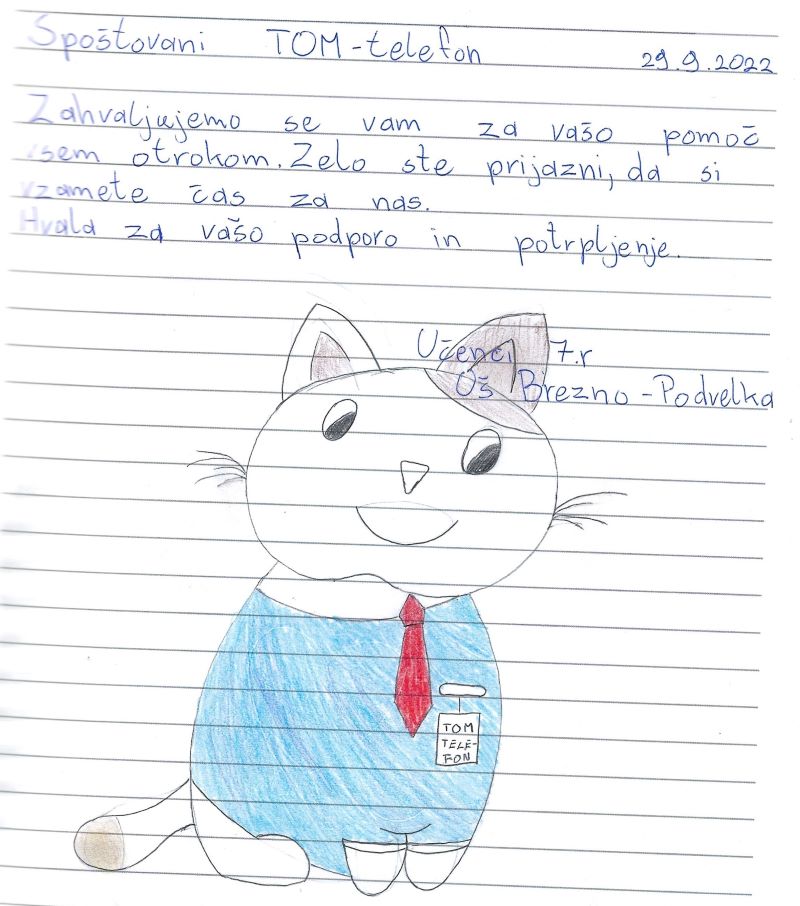 Spoštovani TOM-telefon 29.9.2022
Zahvaljujemo se vam za vašo pomoč
vsem otrokom. Zelo ste prijazni, da si
vzamete čas za nas.
Hvala za vašo podporo in potrpljenje.
Učenci 7.r
OŠ Brezno-Podvelka
TOM
TELE-
FON